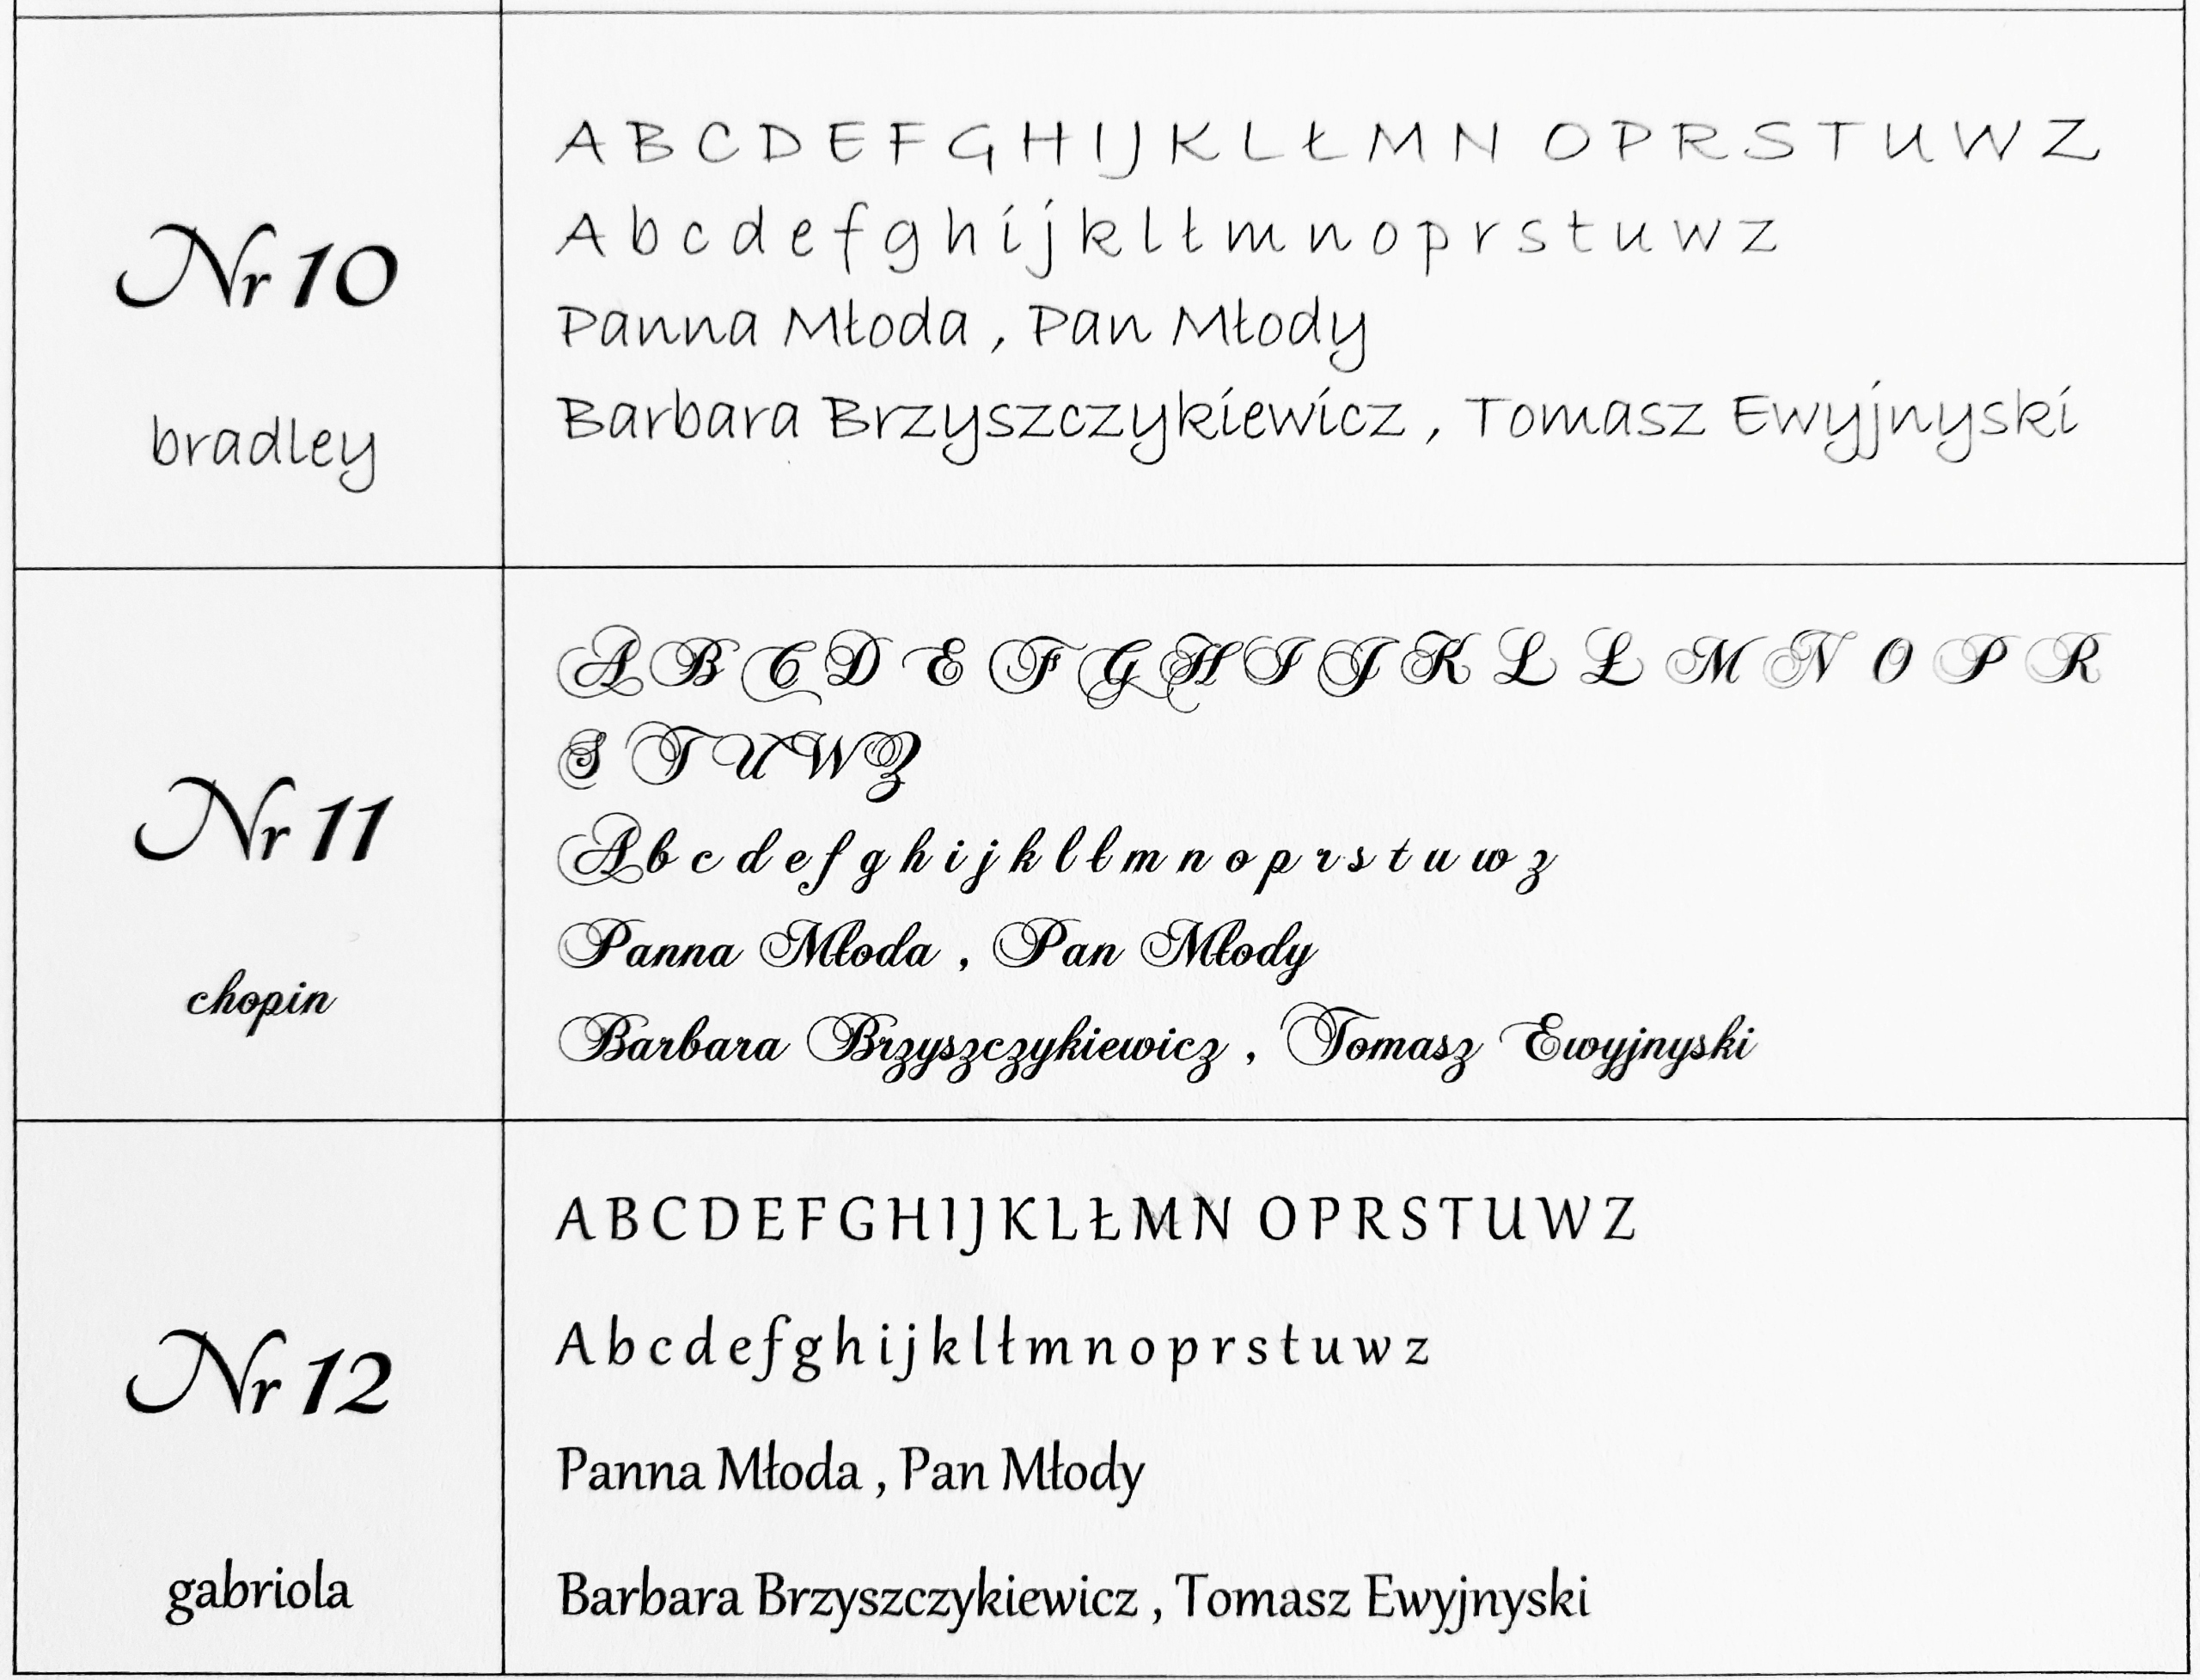 Nr 10
bradley
A B C D E F G H I J K L Ł M N O P R S T U W Z
A b c d e f g h i j k l ł m n o p r s t u w z
Panna Młoda , Pan Młody
Barbara Brzyszczykiewicz , Tomasz Ewyjnyski
Nr 11
chopin
A B C D E F G H I J K L Ł M N O P R
S T U W Z
A b c d e f g h i j k l ł m n o p r s t u w z
Panna Młoda , Pan Młody
Barbara Brzyszczykiewicz , Tomasz Ewyjnyski
Nr 12
gabriola
A B C D E F G H I J K L Ł M N O P R S T U W Z
A b c d e f g h i j k l ł m n o p r s t u w z
Panna Młoda , Pan Młody
Barbara Brzyszczykiewicz , Tomasz Ewyjnyski